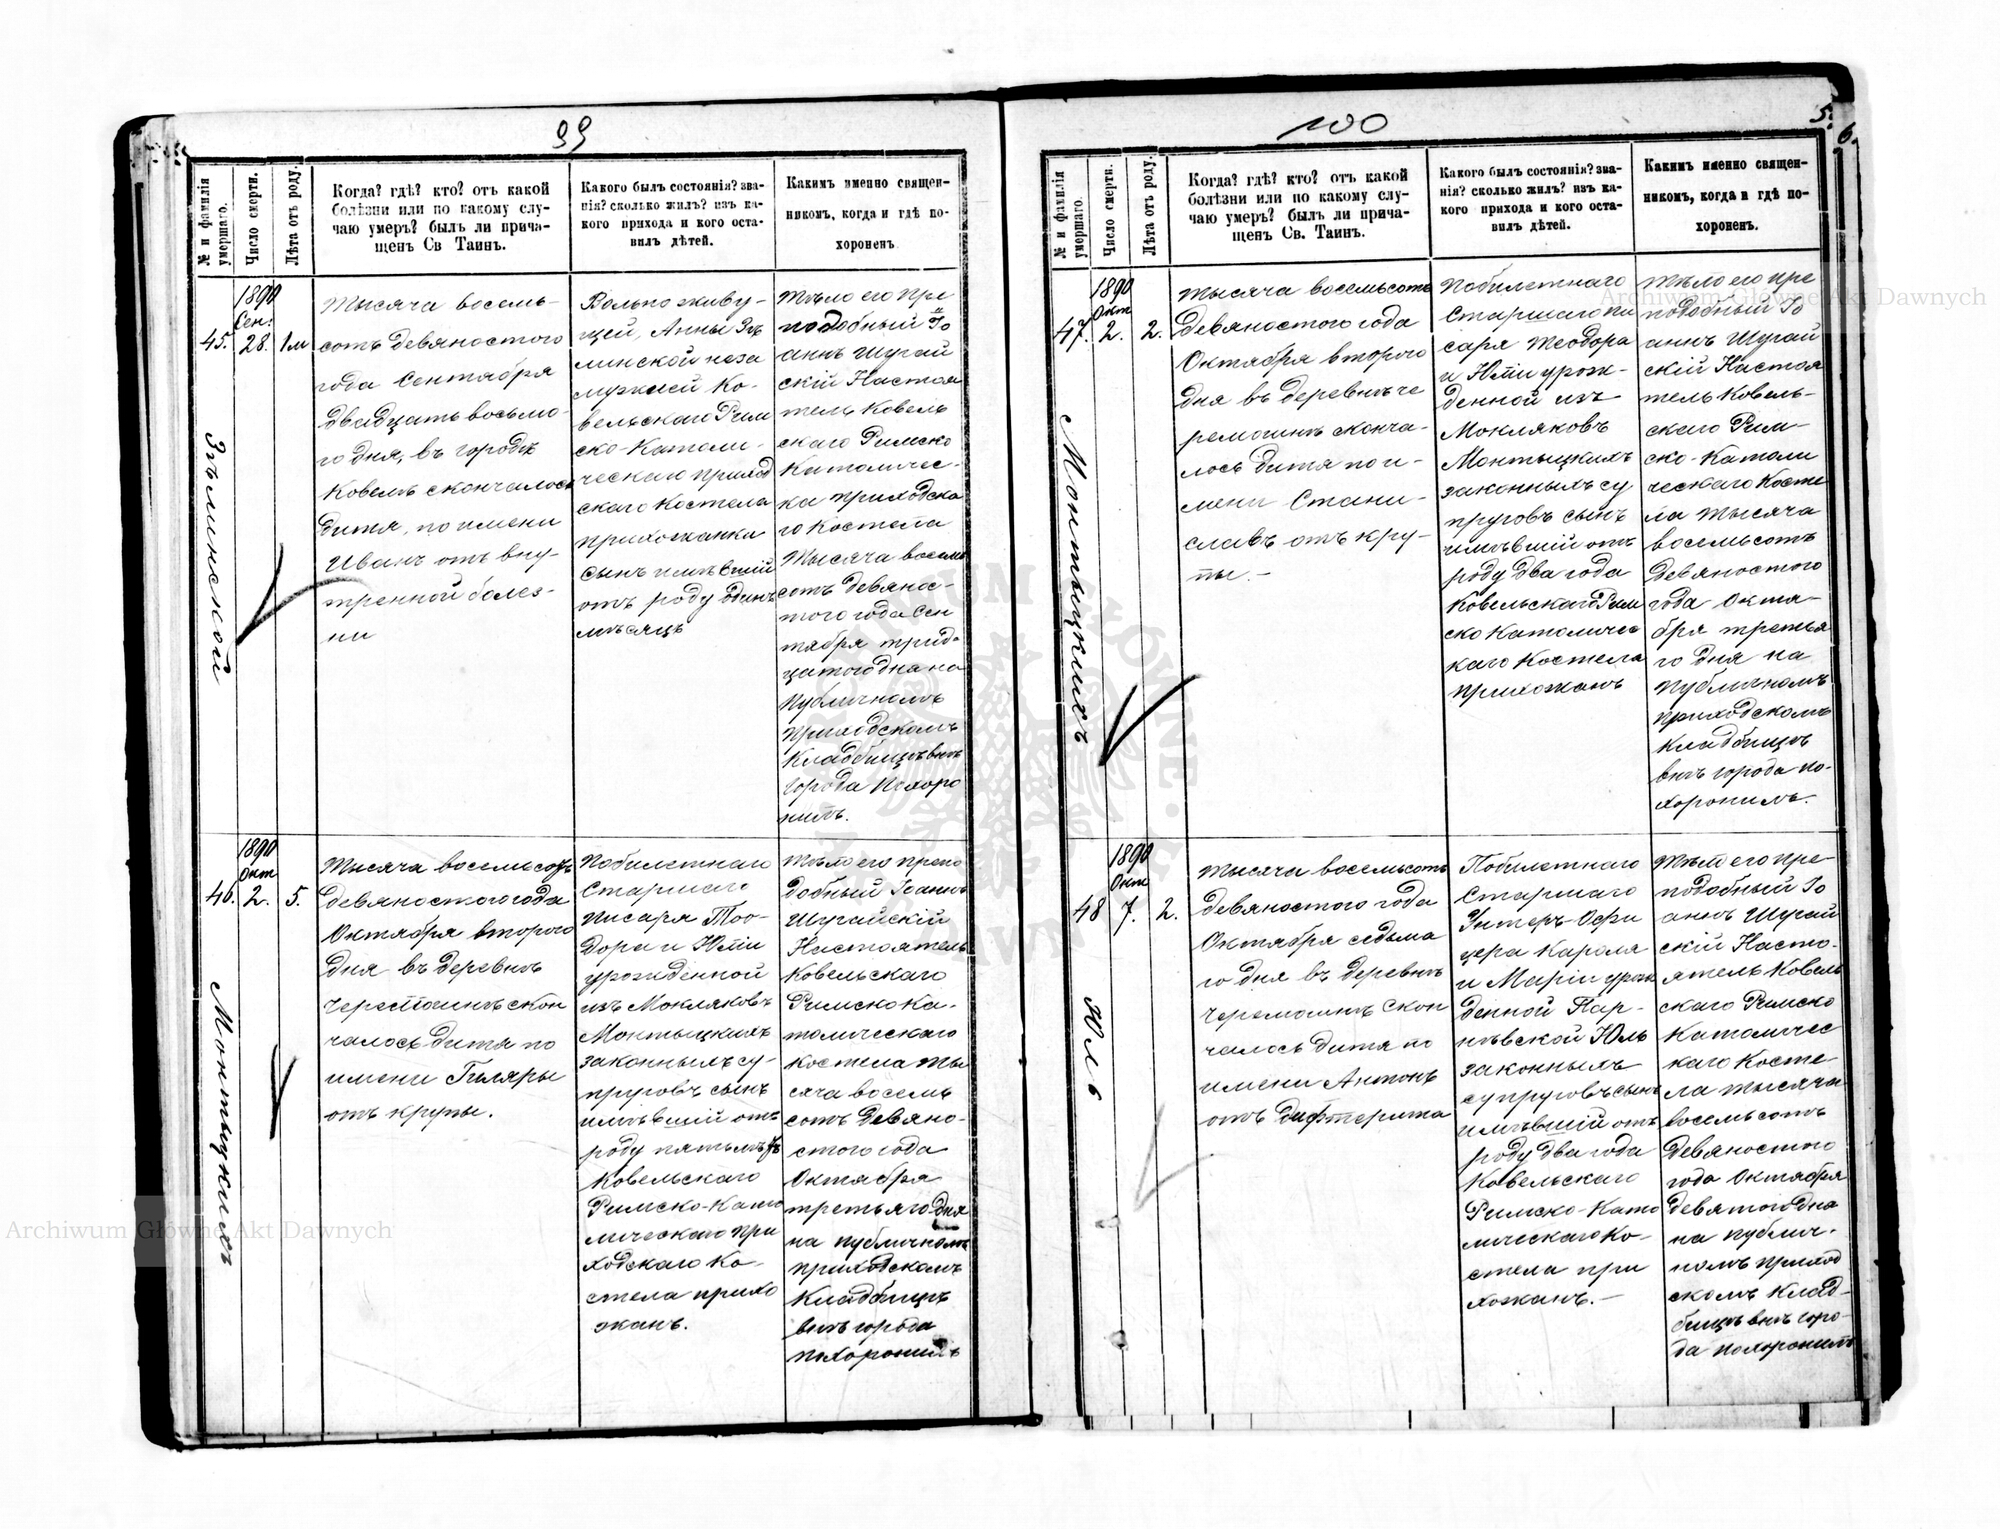 99
№ и фамилія умершаго.
Число смерти.
Лѣта отъ роду.
Когда? гдѣ? кто? отъ какой
болѣзни или по какому слу-
чаю умеръ? былъ ли прича-
щенъ Св Таинъ.
Какого былъ состоянія? зва-
нія? сколько жилъ? изъ ка-
кого прихода и кого оста-
вилъ дѣтей.
Какимъ именно священ-
никомъ, когда и гдѣ по-
хороненъ
45.
Зѣлинской
1890
Сен:
28.
1 м
Тысяча восемь-
сотъ девяностого
года Сентября
двадцать восьмо-
го дня, въ городѣ
Ковелѣ скончалось
дитя, по имени
Иванъ отъ вну-
тренной болез-
ни
Вольноживу-
щей, Анны Зѣ
линской неза
мужней Ко-
вельскаго Рим
ско-Катали-
ческаго приход
скаго Костела
прихожанки
сынъ имѣвшій
отъ роду одинъ
мѣсяцъ
Тѣло его пре
подобный Іо
аннъ Шугай
скій Настоя
тель Ковель
скаго Римско
Католичес-
ка приходска
го Костела
Тысяча восемь
сотъ девянос-
того года Сен
тября трид-
цатого дня на
Публичномъ
приходскомъ
Кладбищѣ внѣ
города Похоро
нилъ.
46.
Монтыцкихъ
1890
Окт
2.
5.
Тысяча восемьсотъ
девяностого года
Октября второго
дня въ деревнѣ
Черемошнѣ скон
чалось дитя по
имени Гиляры
отъ крупы.
Побилетнаго
Старшаго
писаря Тео-
дора и Юліи
урожденной
изъ Мокляковъ
Монтыцкихъ
законныхъ су-
пруговъ сынъ
имѣвшій отъ
роду пять лѣтъ
Ковельскаго
Римско-Като
лическаго при
ходскаго Ко-
стела прихо
жанъ.
Тѣло его препо
добный Іоаннъ
Шугайскій
Настоятель
Ковельскаго
Римско Ка-
толическаго
Костела ты
сяча восемь
сотъ девяно-
стого года
Октября
третьяго дня
на публичномъ
приходскомъ
Кладбищѣ
внѣ города
похоронилъ
100
5.
6.
№ и фамилія умершаго.
Число смерти.
Лѣта отъ роду.
Когда? гдѣ? кто? отъ какой
болѣзни или по какому слу-
чаю умеръ? былъ ли прича-
щенъ Св. Таинъ.
Какого былъ состоянія? зва-
нія? сколько жилъ? изъ ка-
кого прихода и кого оста-
вилъ дѣтей.
Какимъ именно священ-
никомъ, когда и гдѣ по-
хороненъ.
47.
Монтыцкихъ
1890
Окт
2.
2.
Тысяча восемьсотъ
девяностого года
Октября второго
дня въ деревнѣ Че
ремошнѣ сконча-
лось дитя по и-
мени Стани-
славъ отъ кру-
пы.-
Побилетнаго
Старшаго пи
саря Теодора
и Юліи урож-
денной изъ
Мокляковъ
Монтыцкихъ
законныхъ су
пруговъ сынъ
имѣвшій отъ
роду два года
Ковельскаго Рим
ско Католичес
каго Костела
прихожанъ
Тѣло его пре
подобный Іо
аннъ Шугай
скій Настоя
тель Ковель-
скаго Рим-
ско-Катали
ческаго Косте
ла тысяча
восемьсотъ
девяностого
года Октя-
бря третья
го дня на
публичномъ
приходскомъ
кладбищѣ
внѣ города по-
хоронилъ.
48
Юль
1890
Окт
7.
2.
Тысяча восемьсотъ
девяностого года
Октября седьма
го дня въ деревнѣ
Черемошнѣ Скон
чалось дитя по
имени Антонъ
отъ дифтерита
Побилетнаго
Старшаго
Унтеръ-Офи
цера Кароля
и Маріи урож
денной Пар-
нѣвской Юль
законныхъ
супруговъ сынъ
имѣвшій отъ
роду два года
Ковельскаго
Римско-Като
лическаго Ко-
стела при
хожанъ.-
Тѣло его пре-
подобный Іо
аннъ Шугай
скій Насто-
ятель Ковель
скаго Римско
Католичес
каго Косте-
ла тысяча
восемьсотъ
девяностого
года Октября
девятого дня
на публич-
номъ приход
скомъ Клад-
бищѣ внѣ горо-
да похоронилъ
Archiwum Główne Akt Dawnych
Archiwum Główne Akt Dawnych